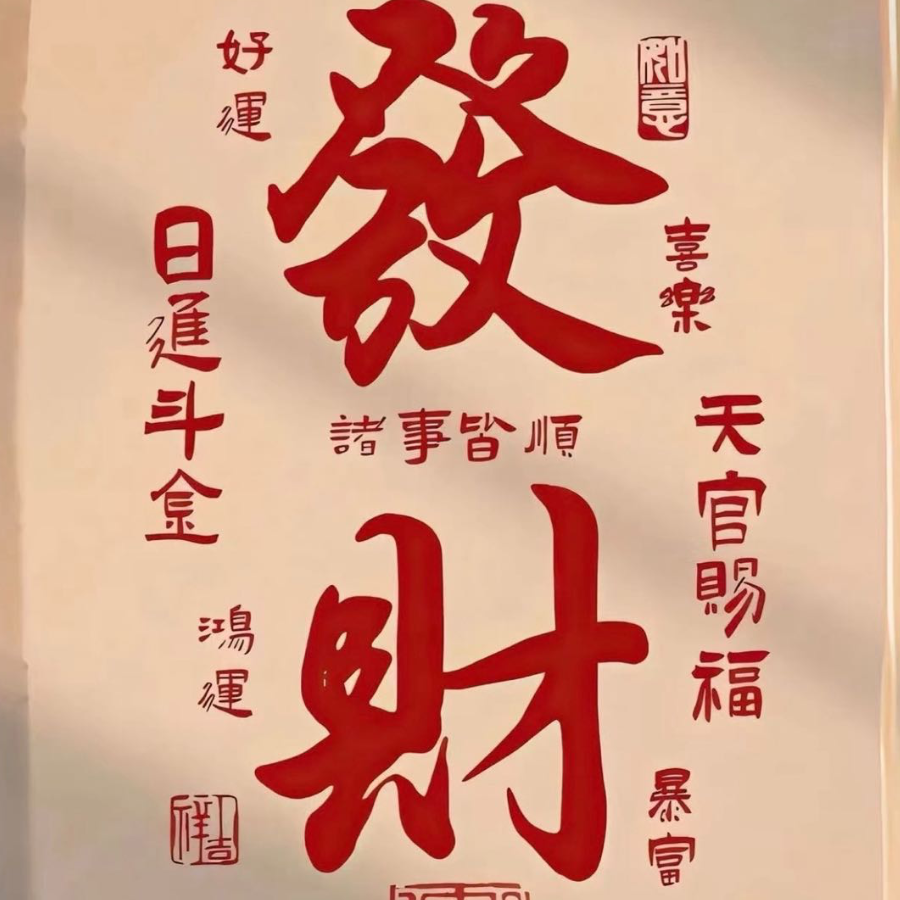 好運
如意
發
日進斗金
喜樂
諸事皆順
天官賜福
財
鴻運
吉祥
暴富